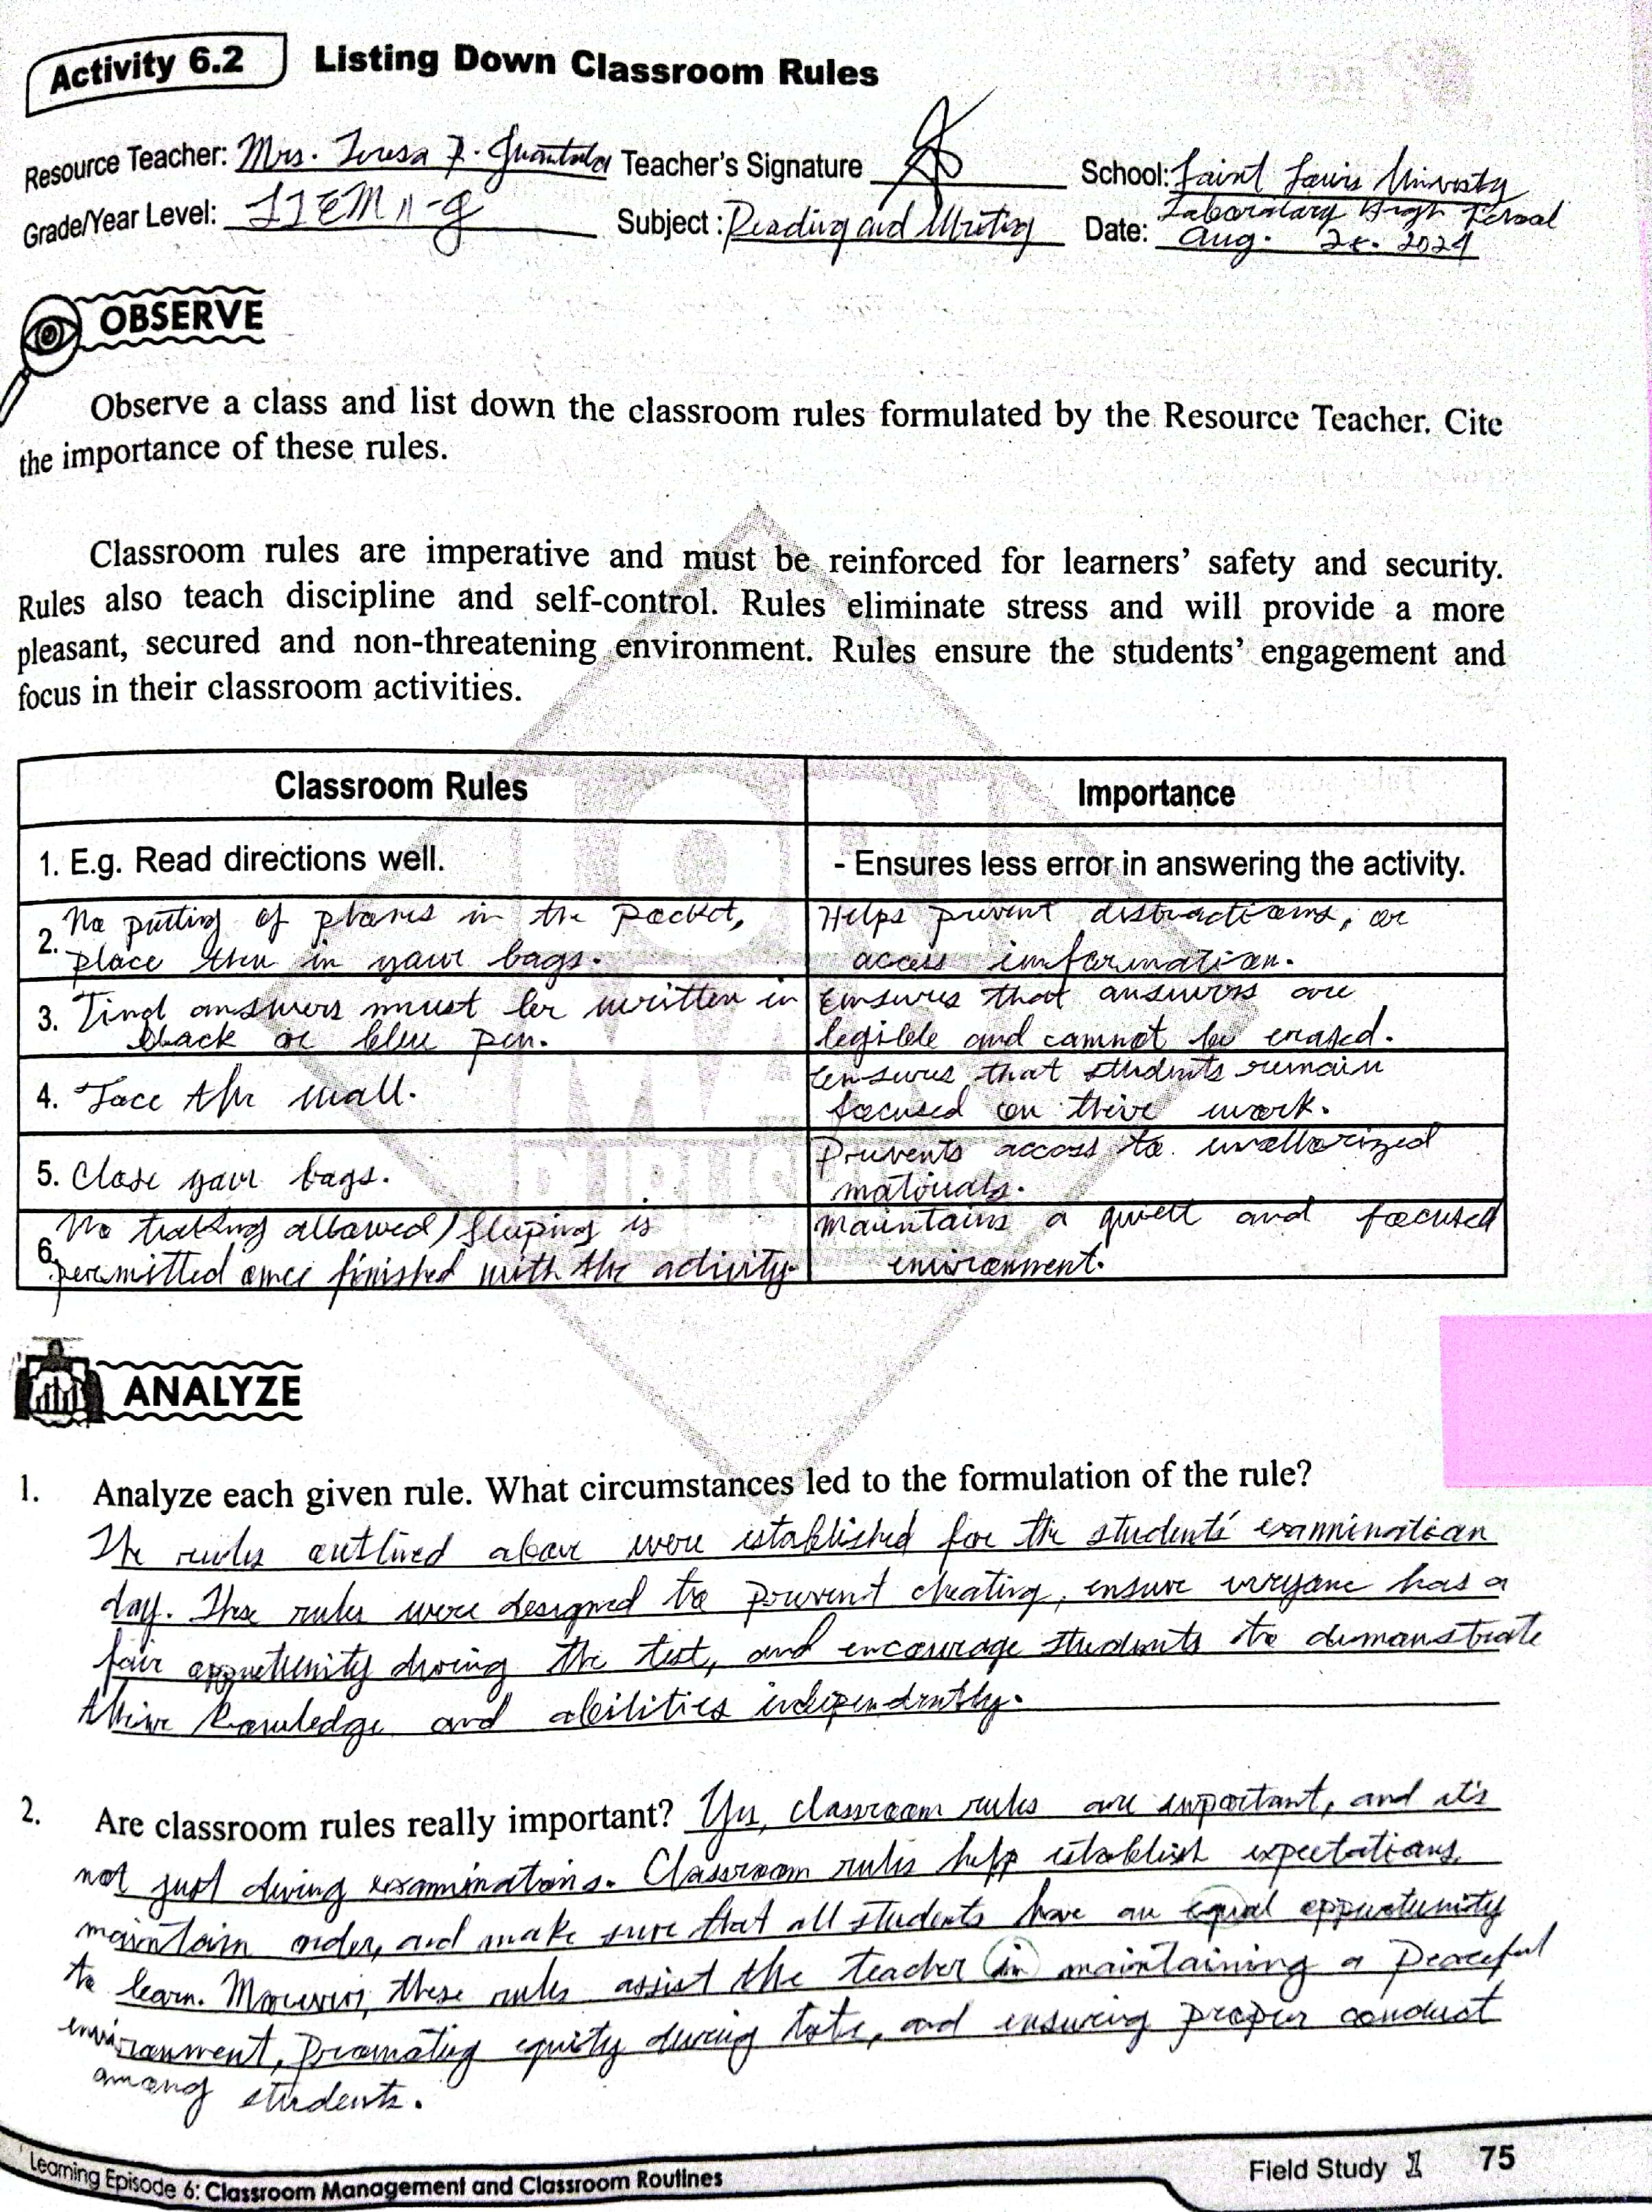 Activity 6.2 Listing Down Classroom Rules
Resource Teacher: Mrs. Teresa F. Teacher's Signature School: Saint Louis University
Laboratory High School
Grade/Year Level: STEM 11-g Subject : Reading and Writing Date: Aug. 2024
OBSERVE
Observe a class and list down the classroom rules formulated by the Resource Teacher. Cite
the importance of these rules.
Classroom rules are imperative and must be reinforced for learners' safety and security.
Rules also teach discipline and self-control. Rules eliminate stress and will provide a more
pleasant, secured and non-threatening environment. Rules ensure the students' engagement and
focus in their classroom activities.
Classroom Rules Importance
1. E.g. Read directions well. - Ensures less error in answering the activity.
2. No putting of phones in the pocket, Helps prevent distractions, or
place them in your bags. access information.
3. Final answers must be written in Ensures that answers are
black or blue pen. legible and cannot be erased.
4. Face the wall. Ensures that students remain
focused on their work.
5. Close your bags. Prevents access to unathorized
materials.
6. No talking allowed/Sleeping is Maintains a quiet and focused
permitted once finished with the activity. environment.
ANALYZE
1. Analyze each given rule. What circumstances led to the formulation of the rule?
The rules outlined above were established for the students' examination
day. These rules were designed to prevent cheating, ensure everyone has a
fair opportunity during the test, and encourage students to demonstrate
their knowledge and abilities independently.
2. Are classroom rules really important? Yes, classroom rules are important, and it's
not just during examinations. Classroom rules help establish expectations,
maintain order, and make sure that all students have an equal opportunity
to learn. Moreover, these rules assist the teacher in maintaining a peaceful
environment, promoting equity during tests, and ensuring proper conduct
among students.
Learning Episode 6: Classroom Management and Classroom Routines Field Study 1 75